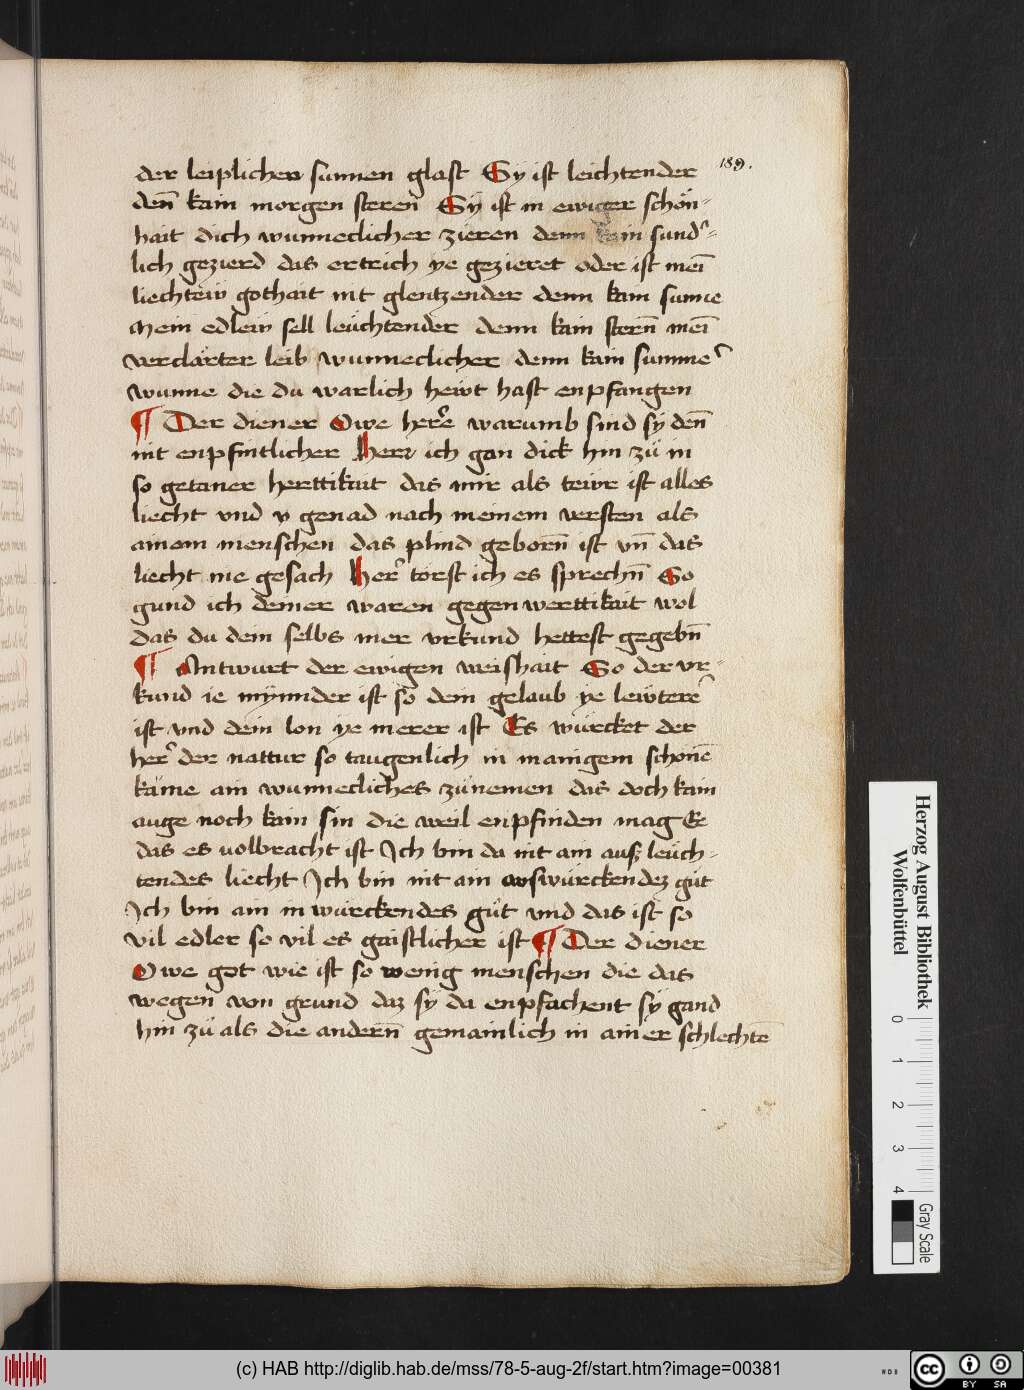 189.
der leiplichen sunnen glast Sy ist leichtender
den̄ kain morgen steren Sÿ ist in ewiger schön-
hait dich wunneclicher zieren denn kain sund'-
lich gezierd das ertrich ye gezieret oder ist mei̅
liechtew gothait nit glentzender denn kain sunne
Mein edlew sell leüchtender denn kain stern̄ mei̅
verclärter leib wunneclicher denn kain summe'
wunne die du warlich hewt hast enpfangen
¶ Der diener Owe her'e warumb sind sÿ den̄
nit enpfintlicher Herr ich gan dick hin zü in
so getaner herttikait das mir als tewr ist alles
liecht vnd v genad nach meinem versten als
ainem menschen das plind geborn̄ ist vn̄ das
liecht nie gesach Her' torst ich es sprechn̄ So
gund ich deiner waren gegenwerttikait wol
das du dein selbs mer vrkund hettest gegebn̄
¶ Antwurt der ewigen weishait So der vr-
kund ie mÿnnder ist so dein gelaub ye lewtere'
ist vnd dein lon ye merer ist Es würcket der
her' der nattur so taugenlich in manigem schonē
käme ain wunnecliches zünemen das doch kain
auge noch kain sin die weil enpfinden mag Ee
das es volbracht ist Ich bin da nit ain auß leüch-
tendes liecht Ich bin nit ain auswürckendez güt
Ich bin ain inwürckendes güt vnd das ist so
vil edler so vil es gaistlicher ist ¶ Der diener
Owe got wie ist so wenig menschen die das
wegen von grund daz sÿ da enpfachent sÿ gand
hin zü als die andern̄ gemainlich in ainer schlechtē
Herzog August Bibliothek
Wolfenbüttel
0 1 2 3 4
Gray Scale
(c) HAB http://diglib.hab.de/mss/78-5-aug-2f/start.htm?image=00381
WDB
cc BY SA